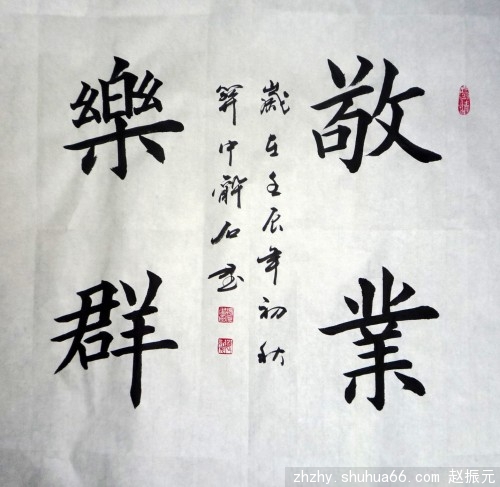 敬業
樂群
歲在壬辰年初秋
zhzhy.shuhua66.com 赵振元